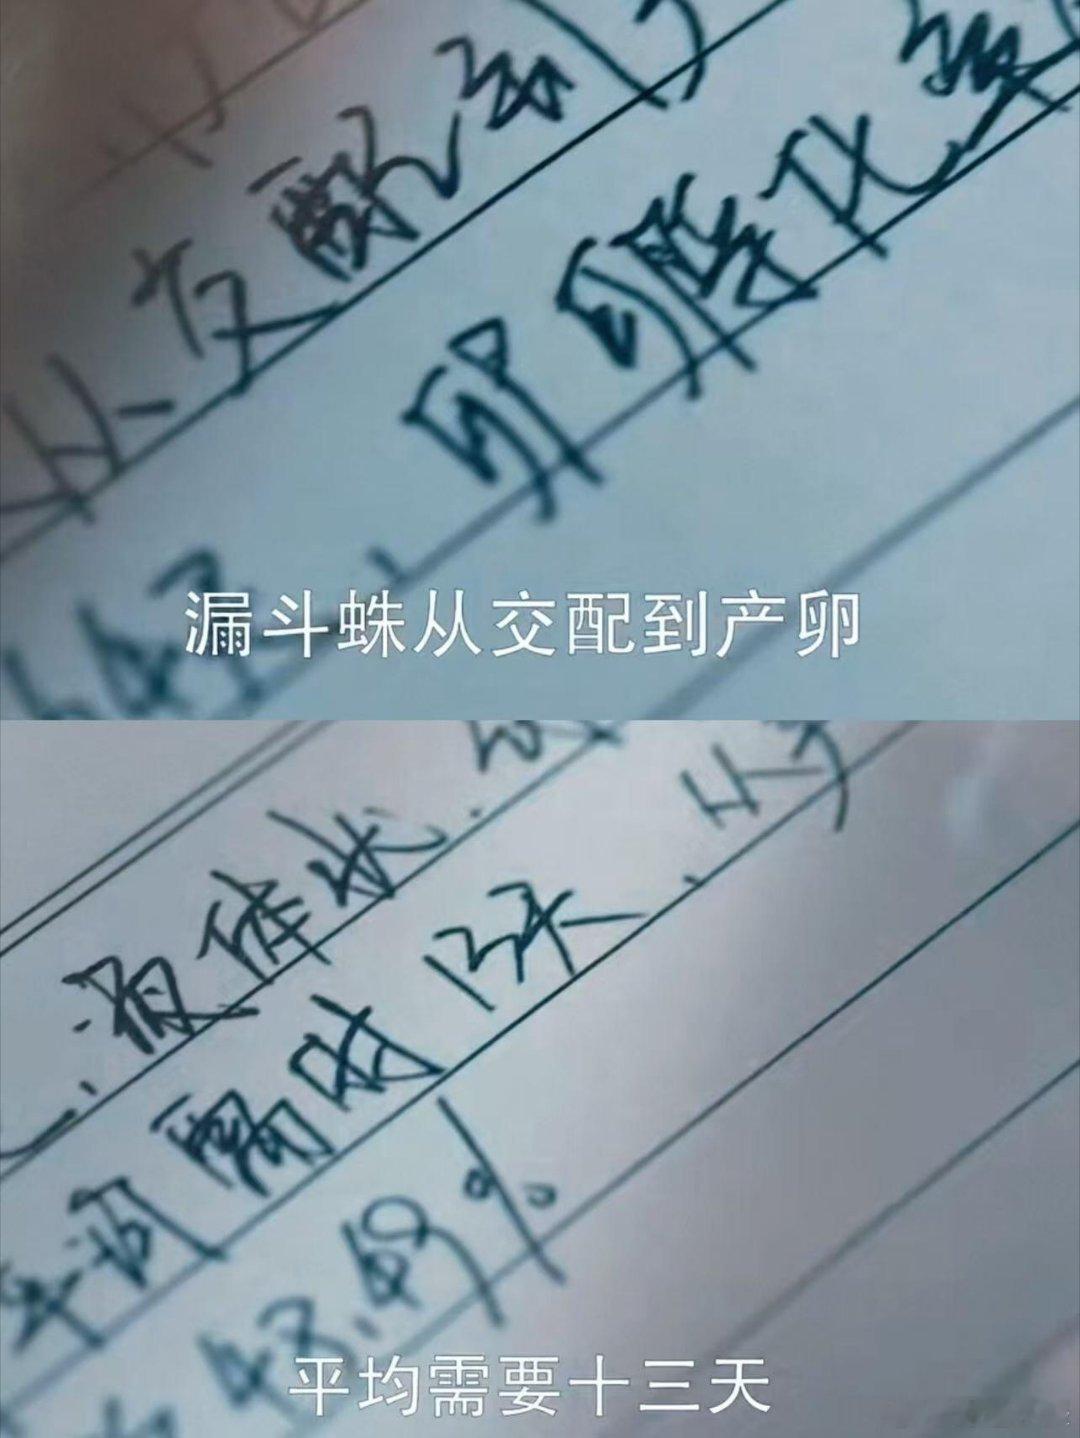 从交配到产
卵孵化率
漏斗蛛从交配到产卵
液体状.
需时13天.从
48.49%
平均需要十三天